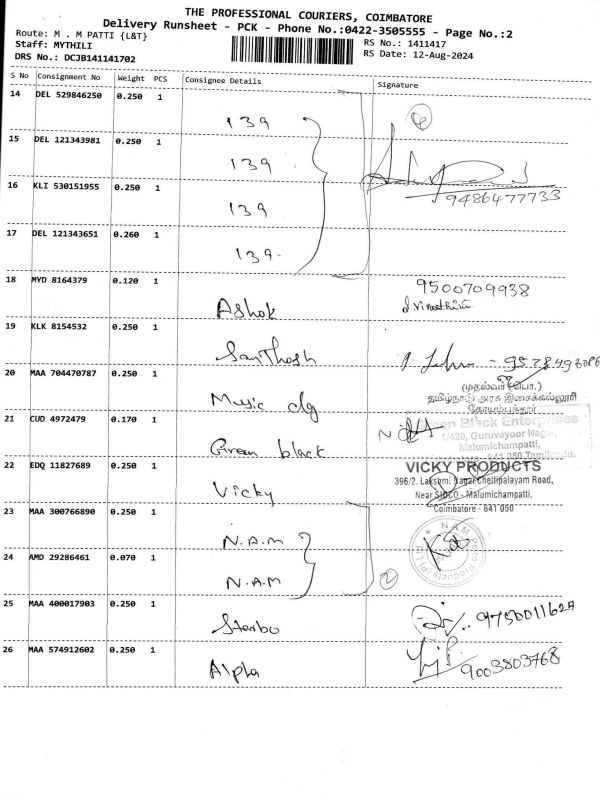 THE PROFESSIONAL COURIERS, COIMBATORE
Delivery Runsheet - PCK - Phone No.:0422-3505555 - Page No.:2
Route: M . M PATTI {L&T}
Staff: MYTHILI
DRS No.: DCJB141141702
RS No.: 1411417
RS Date: 12-Aug-2024
S No Consignment No Weight PCS Consignee Details Signature
14 DEL 529846250 0.250 1 139
4
15 DEL 121343981 0.250 1 139
16 KLI 530151955 0.250 1 139
9486477733
17 DEL 121343651 0.260 1 139.
18 MYD 8164379 0.120 1 Ashok
9500709938
19 KLK 8154532 0.250 1 Santhosh
20 MAA 704470787 0.250 1 Music clg
(முதல்வர் (பொ.)
தமிழ்நாடு அரசு இசைக்கல்லூரி
கோயம்புத்தூர்
21 CUD 4972479 0.170 1 Green black
Black Enterprises
1/420, Guruvayoor Nagar,
Malumichampatti,
641 050 Tamilnadu.
22 EDQ 11827689 0.250 1 Vicky
VICKY PRODUCTS
396/2. Lakshmi Nagar, Chettipalayam Road,
Near SIDCO - Malumichampatti,
Coimbatore - 641 050
23 MAA 300766890 0.250 1 N.A.M
24 AMD 29286461 0.070 1 N.A.M
2
25 MAA 400017903 0.250 1 Steribo
26 MAA 574912602 0.250 1 Alpha
9003803768